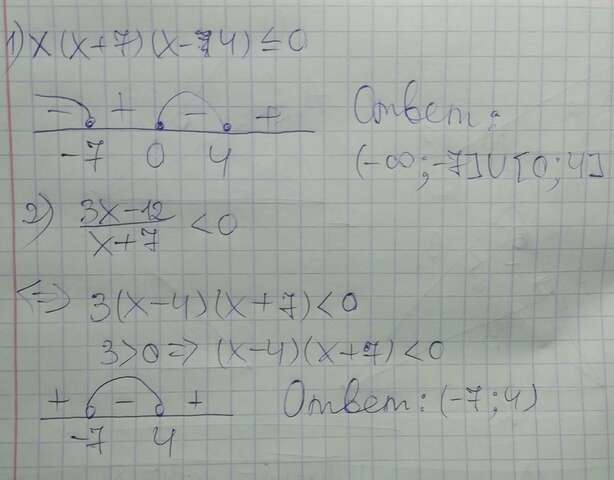 1) x(x+7)(x-4)≤0
- + - +
-7 0 4
Ответ:
(-∞;-7]∪[0;4]
2) 3x-12
x+7 <0
<=> 3(x-4)(x+7)<0
3>0=> (x-4)(x+7)<0
+ - +
-7 4
Ответ: (-7;4)